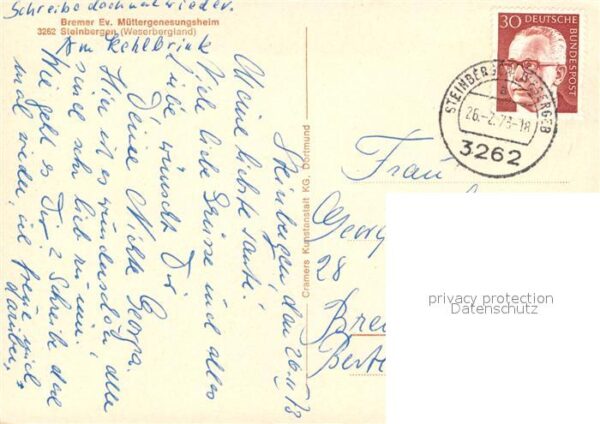 Schreibe doch mal wieder.
Bremer Ev. Müttergenesungsheim
3262 Steinbergen (Weserbergland)
Am Kehlbrink
30 DEUTSCHE
BUNDESPOST
STEINBERGEN
a
26.-2.73-18
3262
Steinbergen, den 26.II 73
Meine liebste Tante!
Viel liebe Grüsse und alles
Liebe wünscht Dir
Deine Nichte Georga.
Hier ist es wunderschön alle
sind sehr lieb zu mir.
Wie geht es Dir? Schreibe doch
mal wieder, ich freue mich
darüber,
Cramers Kunstanstalt KG, Dortmund
Frau
Georg
28
Bre
privacy protection
Datenschutz